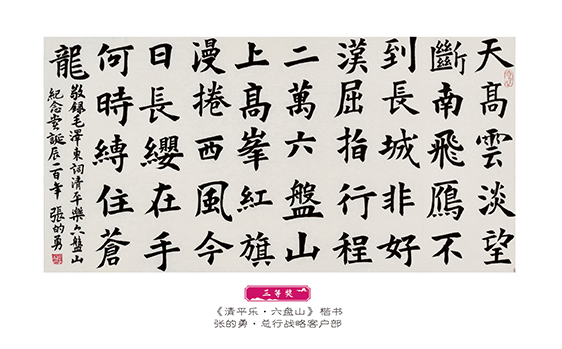 天髙雲淡望
斷南飛鴈不
到長城非好
漢屈指行程
二萬六盤山
上髙峯紅旗
漫捲西風今
日長纓在手
何時縛住蒼
龍
敬録毛澤東詞清平樂六盤山
紀念誕辰百年 張的勇
三等奖
《清平乐·六盘山》楷书
张的勇·总行战略客户部